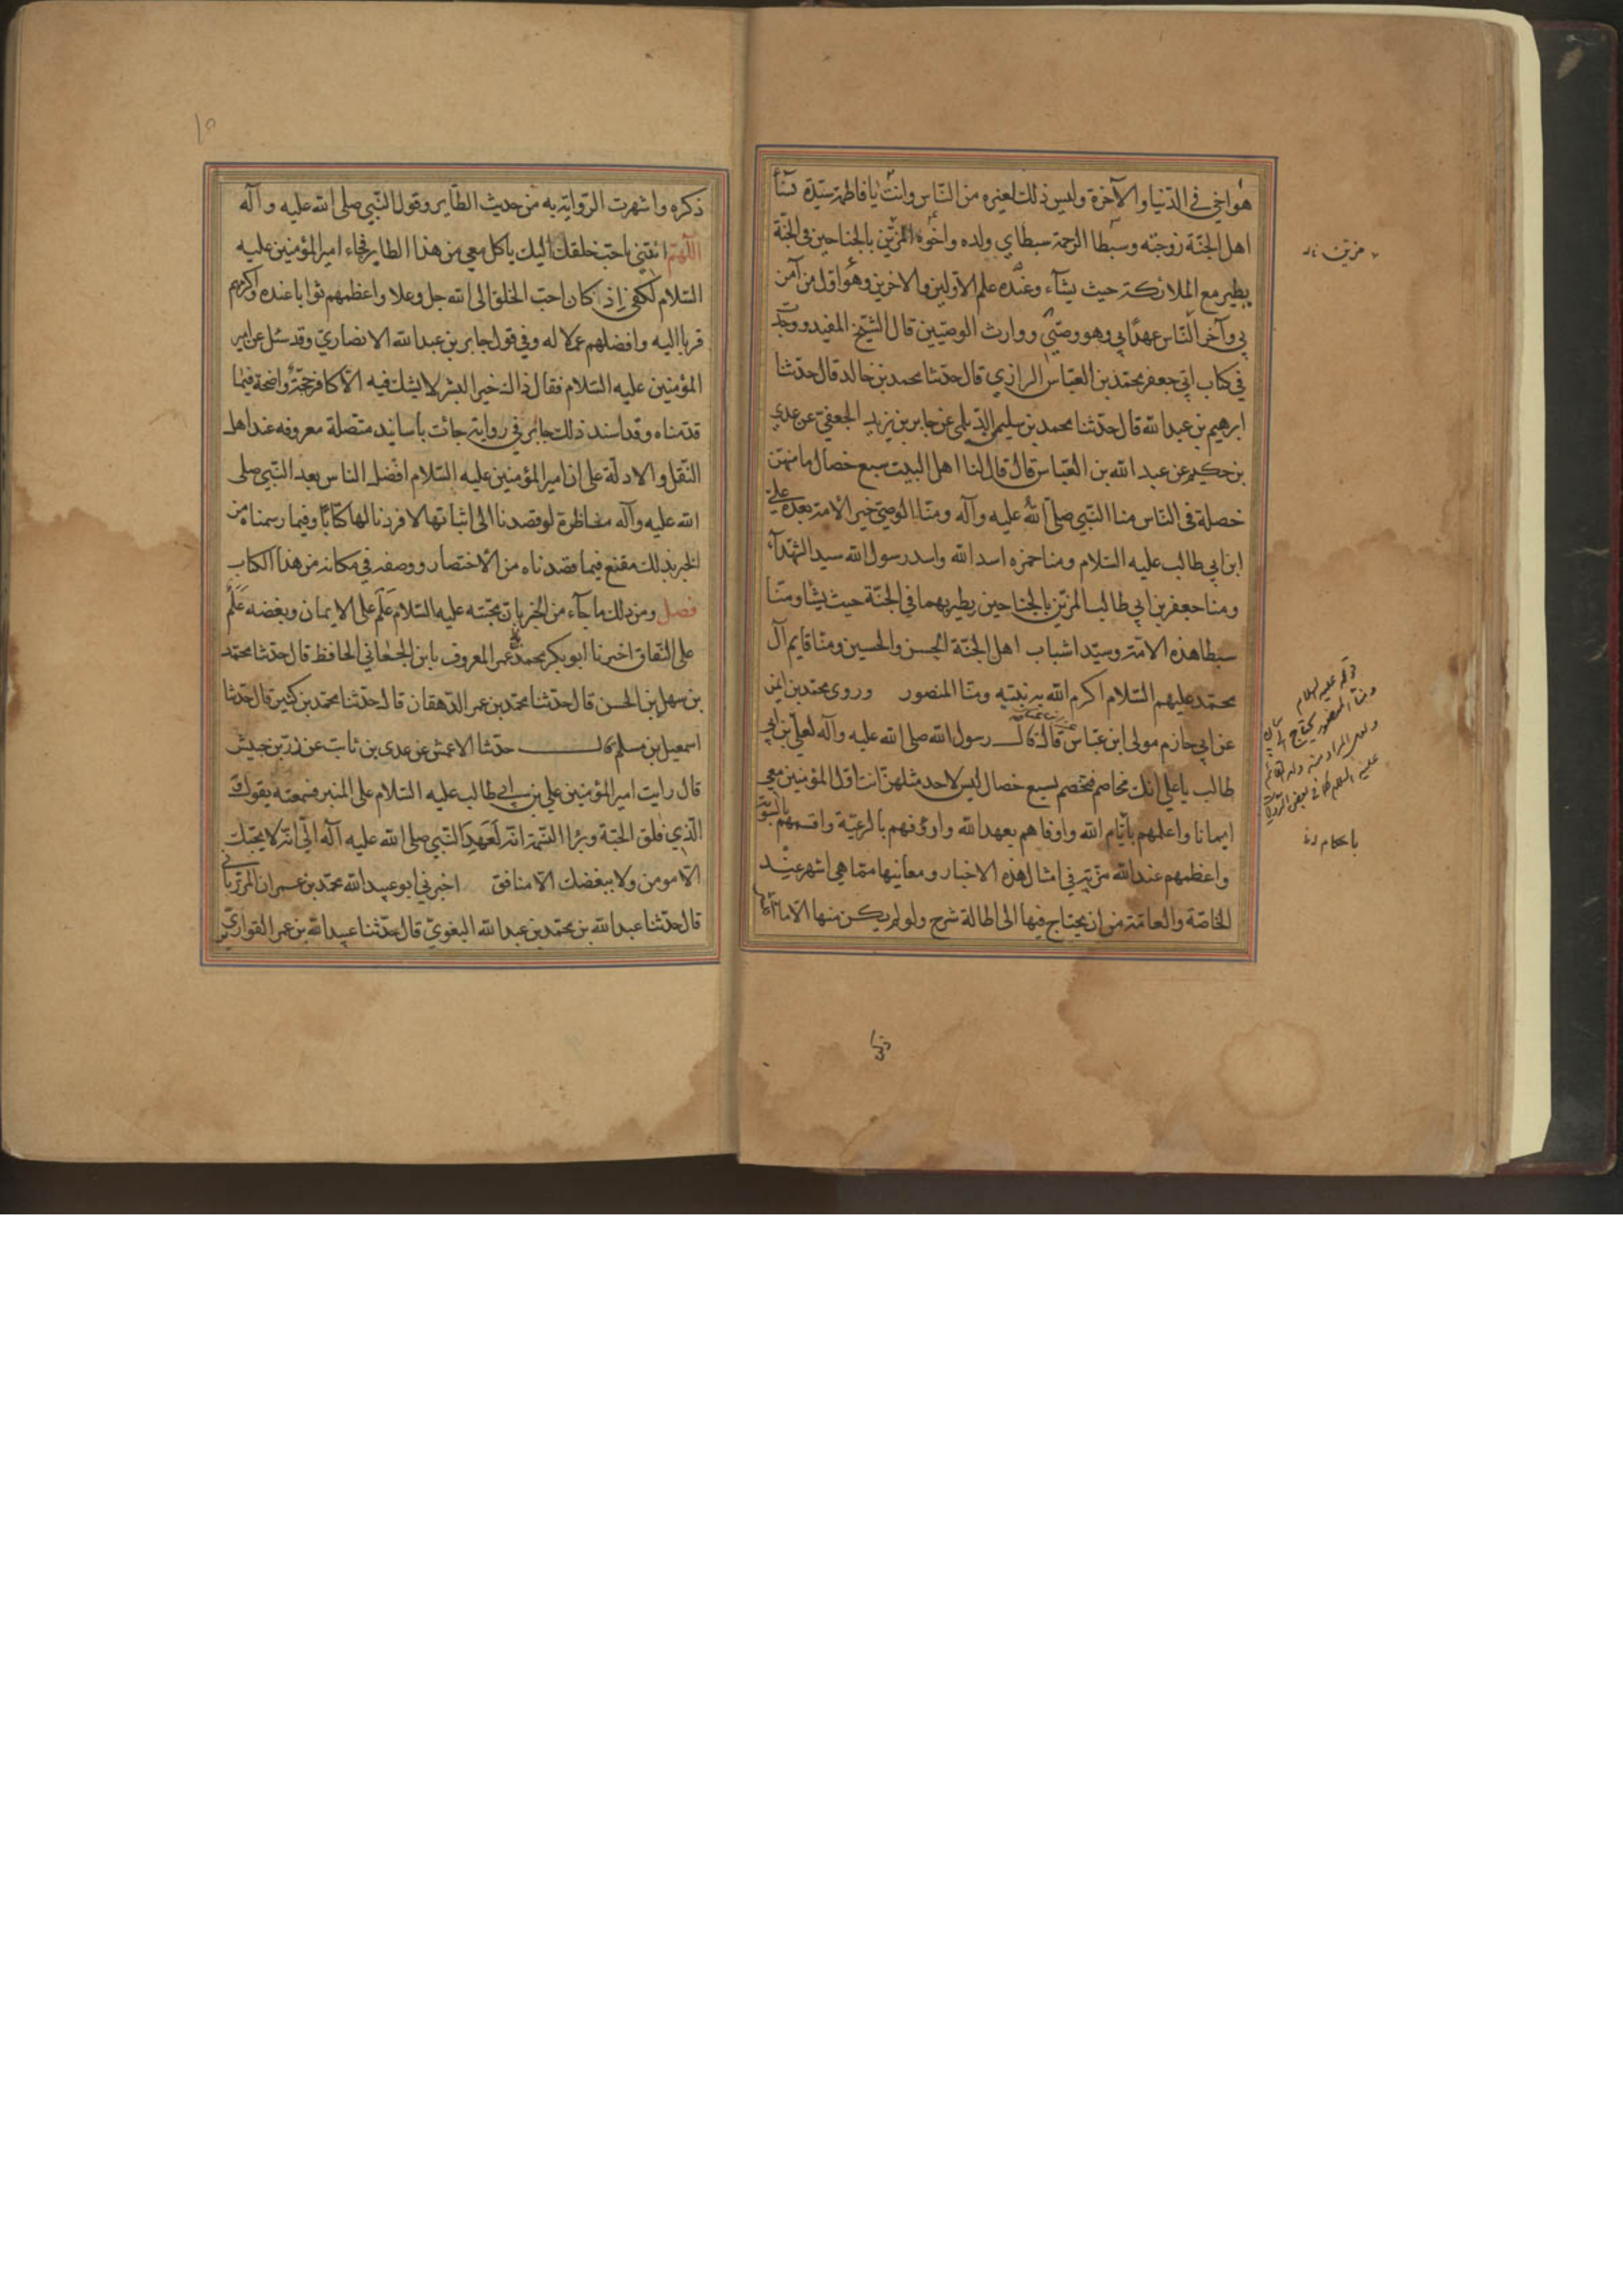 هو اخي في الدّنيا والآخرة وليس ذلك لغيره من النّاس وانت يا فاطمة سيّدة نسآ
اهل الجنّة زوجته وسبطا الرحمة سبطاي ولده واخوه المزيّن بالجناحين في الجنّة
يطير مع الملائكة حيث يشآء وعنده علم الأوّلين والآخرين وهو اوّل من آمن
بي وآخر النّاس عهدًا بي وهو وصيّي ووارث الوصيّين قال الشّيخ المفيد ووجد
في كتاب ابي جعفر محمّد بن العبّاس الرازي قال حدّثنا محمد بن خالد قال حدّثنا
ابرهيم بن عبد الله قال حدّثنا محمد بن سليمن الدّيلمي عن جابر بن يزيد الجعفي عن عدي
بن حكيم عن عبد الله بن العبّاس قال قال لنا اهل البيت سبع خصال ما منهنّ
خصلة في النّاس منا النّبي صلّى الله عليه وآله ومنّا الوصيّ خير الأمة بعده علي
ابن ابي طالب عليه السّلام ومنا حمزه اسد الله واسد رسول الله سيد الشّهدآء
ومنا جعفر بن ابي طالب المزيّن بالجناحين يطير بهما في الجنّة حيث يشا ومنّا
سبطا هذه الامّة وسيّدا شباب اهل الجنّة الحسن والحسين ومنّا قايم آل
محمّد عليهم السّلام اكرم الله به نبيّه ومنّا المنصور وروى محمّد بن ايمن
عن ابي حازم مولى ابن عبّاس قال قال رسول الله صلى الله عليه وآله لعلي بن ابي
طالب يا علي انك تخاصم فتخصم بسبع خصال ليس لاحد مثلهنّ انت اوّل المؤمنين معي
ايمانا واعلمهم بأيّام الله واوفاهم بعهد الله وارؤفهم بالرعيّة واقسمهم بالسّويّة
واعظمهم عند الله مزيّة في امثال هذه الاخبار ومعانيها ممّا هي اشهر عند
الخاصّة والعامّة من ان يحتاج فيها الى اطالة شرح ولو لم يكن منها الّا ما
مزيّن
قوله عليه السلام
ومنّا المنصور يحتاج الى
عليه السلام كما في بعض الروايات
باحكام
ذكره واشهرت الرّواية به من حديث الطّاير وقول النّبي صلى الله عليه وآله
اللّهمّ ائتني باحبّ خلقك اليك ياكل معي من هذا الطاير فجاء امير المؤمنين عليه
السّلام لكفى إذ كان احبّ الخلق الى الله جل وعلا واعظمهم ثوابا عنده واكثرهم
قربا اليه وافضلهم عملا له وفي قول جابر بن عبد الله الانصاريّ وقد سئل عن امير
المؤمنين عليه السّلام فقال ذاك خير البشر لا يشك فيه الّا كافر حجّة واضحة فيما
قدمناه وقد اسند ذلك جابر في رواية جائت بأسانيد متّصلة معروفه عند اهل
النّقل والادلّة على ان امير المؤمنين عليه السّلام افضل الناس بعد النّبي صلى
الله عليه وآله متناظرة لو قصدنا الى اثباتها لافردنا لها كتابًا وفيما رسمناه من
الخبر بذلك مقنع فيما قصدناه من الأختصار ووصفه في مكانه من هذا الكتاب
فصل ومن ذلك ما جآء من الخبر بانّ محبّته عليه السّلام عَلَم على الايمان وبغضه عَلَم
على النّفاق اخبرنا ابو بكر محمد بن عمر المعروف بابن الجعابي الحافظ قال حدّثنا محمّد
بن سهل بن الحسن قال حدّثنا محمّد بن عمر الدّهقان قال حدّثنا محمّد بن كثير قال حدّثنا
اسمعيل بن مسلم قال حدّثنا الاعمش عن عدي بن ثابت عن زرّ بن حبيش
قال رايت امير المؤمنين علي بن ابي طالب عليه السّلام على المنبر فسمعته يقول و
الّذي فلق الحبّة وبرا النّسمة انّه لَعَهِدَ النّبي صلى الله عليه آله اليّ انّه لا يحبّك
الّا مومن ولا يبغضك الّا منافق اخبرني ابو عبيد الله محمّد بن عمران المرزباني
قال حدّثنا عبد الله بن محمّد بن عبد الله البغويّ قال حدّثنا عبيد الله بن عمر القواريري
ذكره
١٥